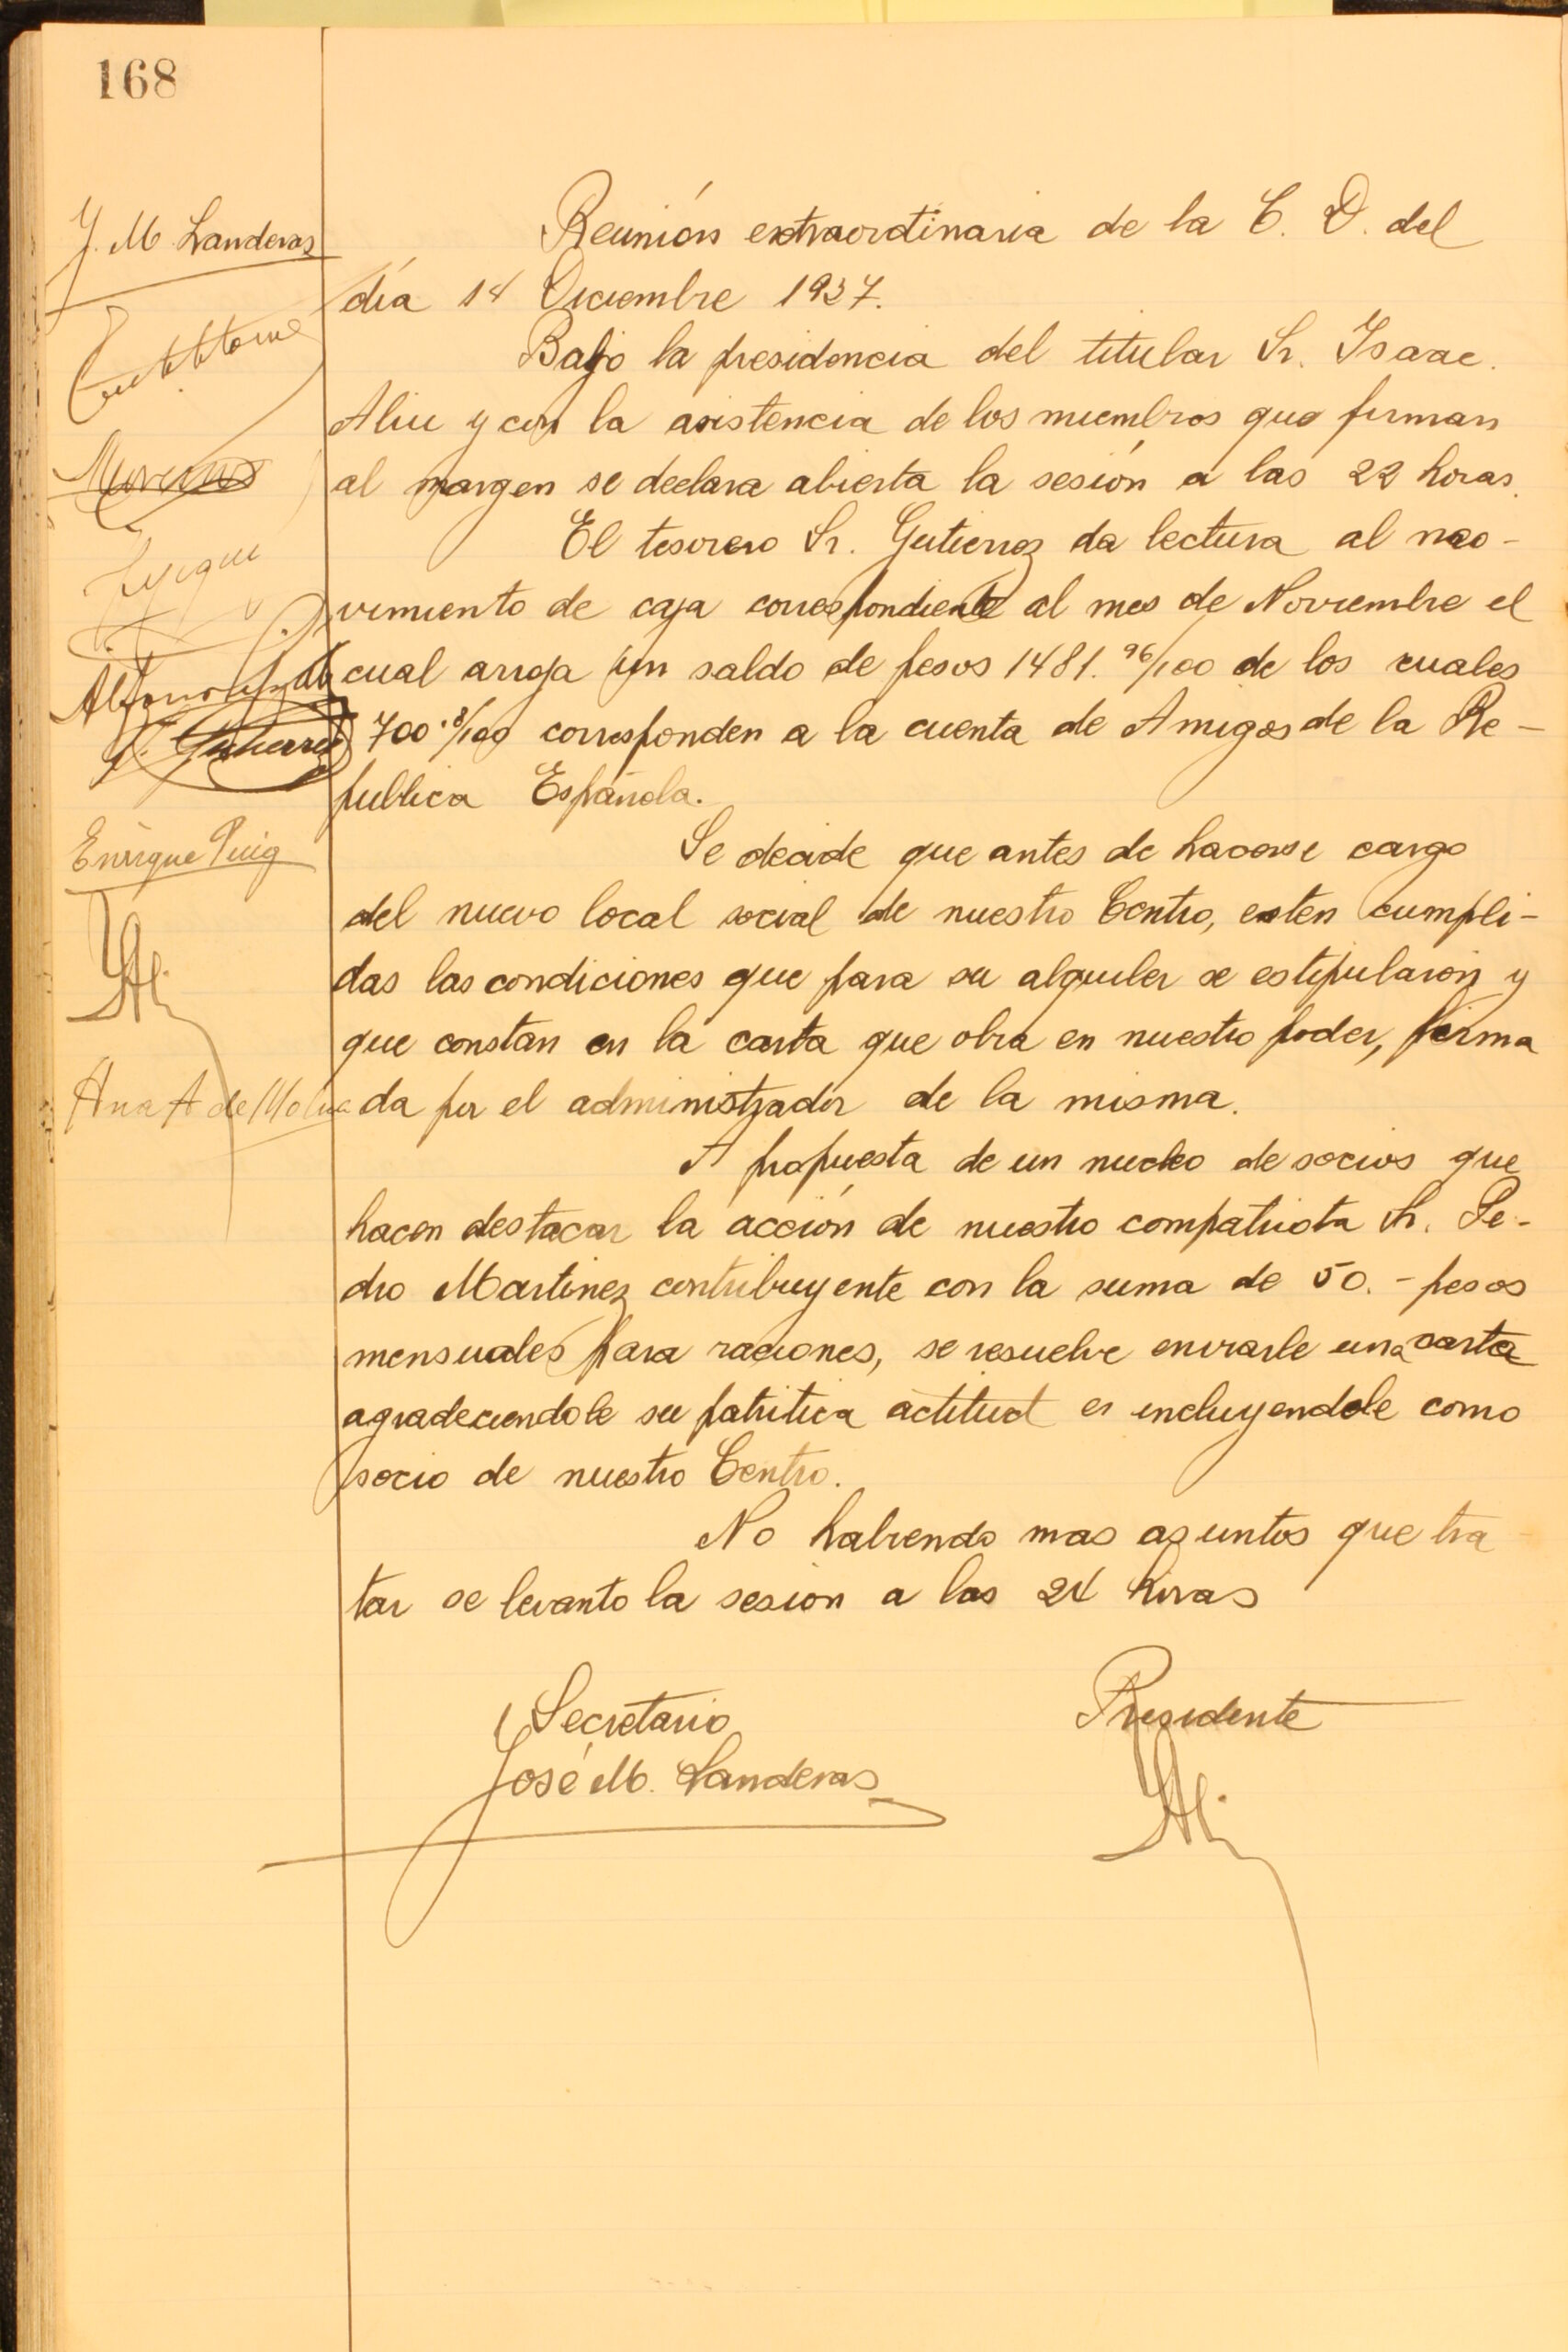 168
J. M. Landeras
Moreno
Enrique Puig
Ana A de
Reunión extraordinaria de la C. D. del
día 14 Diciembre 1937.
Bajo la presidencia del titular Sr. Isaac.
Aliu y con la asistencia de los miembros que firman
al margen se declara abierta la sesión a las 22 horas.
El tesorero Sr. Gutierrez da lectura al mo-
vimiento de caja correspondiente al mes de Noviembre el
cual arroja un saldo de pesos 1481. 96/100 de los cuales
700.8/100 corresponden a la cuenta de Amigos de la Re-
publica Española.
Se decide que antes de hacerse cargo
del nuevo local social de nuestro Centro, esten cumpli-
das las condiciones que para su alquiler se estipularon y
que constan en la carta que obra en nuestro poder, firma
da por el administrador de la misma.
A propuesta de un nucleo de socios que
hacen destacar la acción de nuestro compatriota Sr. Pe-
dro Martinez contribuyente con la suma de 50.- pesos
mensuales para raciones, se resuelve enviarle una carta
agradeciendole su patritica actitud e incluyendole como
socio de nuestro Centro.
No habiendo mas asuntos que tra
tar se levanto la sesion a las 24 horas
Secretario
José M. Landeras
Presidente